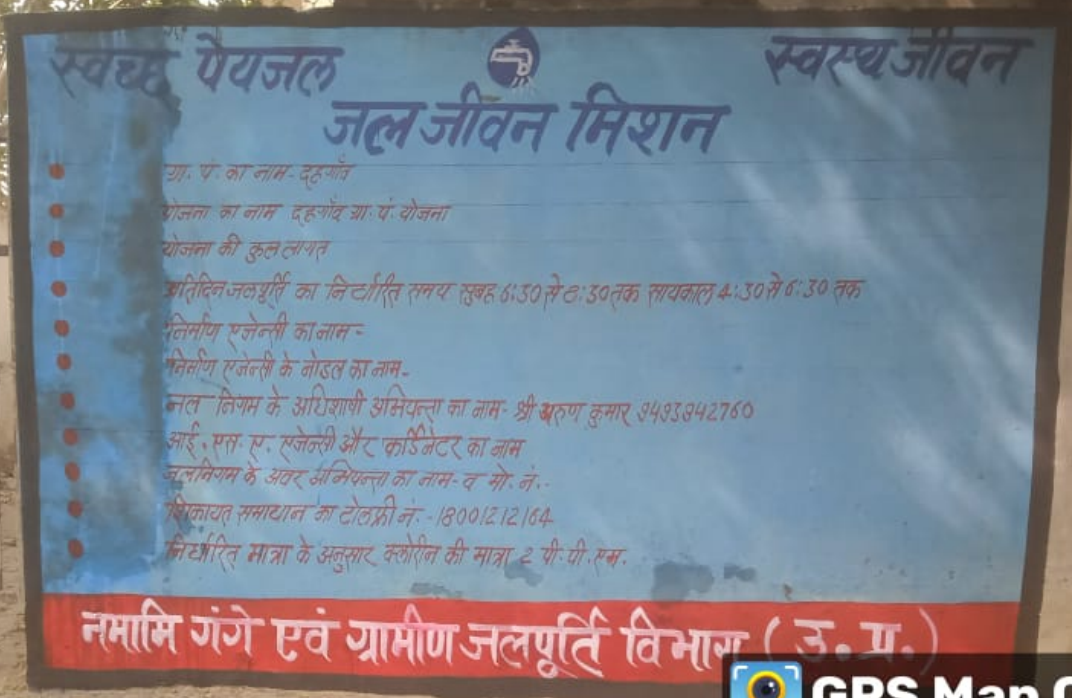 स्वच्छ पेयजल स्वस्थ जीवन
जल जीवन मिशन
ग्रा. पं. का नाम- दहगाँव
योजना का नाम दहगाँव ग्रा. पं. योजना
योजना की कुल लागत
प्रतिदिन जलपूर्ति का निर्धारित समय सुबह 6:30 से 8:30 तक सायकाल 4:30 से 6:30 तक
निर्माण एजेन्सी का नाम-
निर्माण एजेन्सी के नोडल का नाम-
जल निगम के अधिशाषी अभियन्ता का नाम- श्री अरुण कुमार 9493942760
आई. एस. ए. एजेन्सी और कॉर्डिनेटर का नाम
जलनिगम के अवर अभियन्ता का नाम- व मो. नं.-
शिकायत समाधान का टोलफ्री नं. -18001212164
निर्धारित मात्रा के अनुसार क्लोरीन की मात्रा 2 पी. पी. एम.
नमामि गंगे एवं ग्रामीण जलपूर्ति विभाग (उ. प्र.)
GPS Map